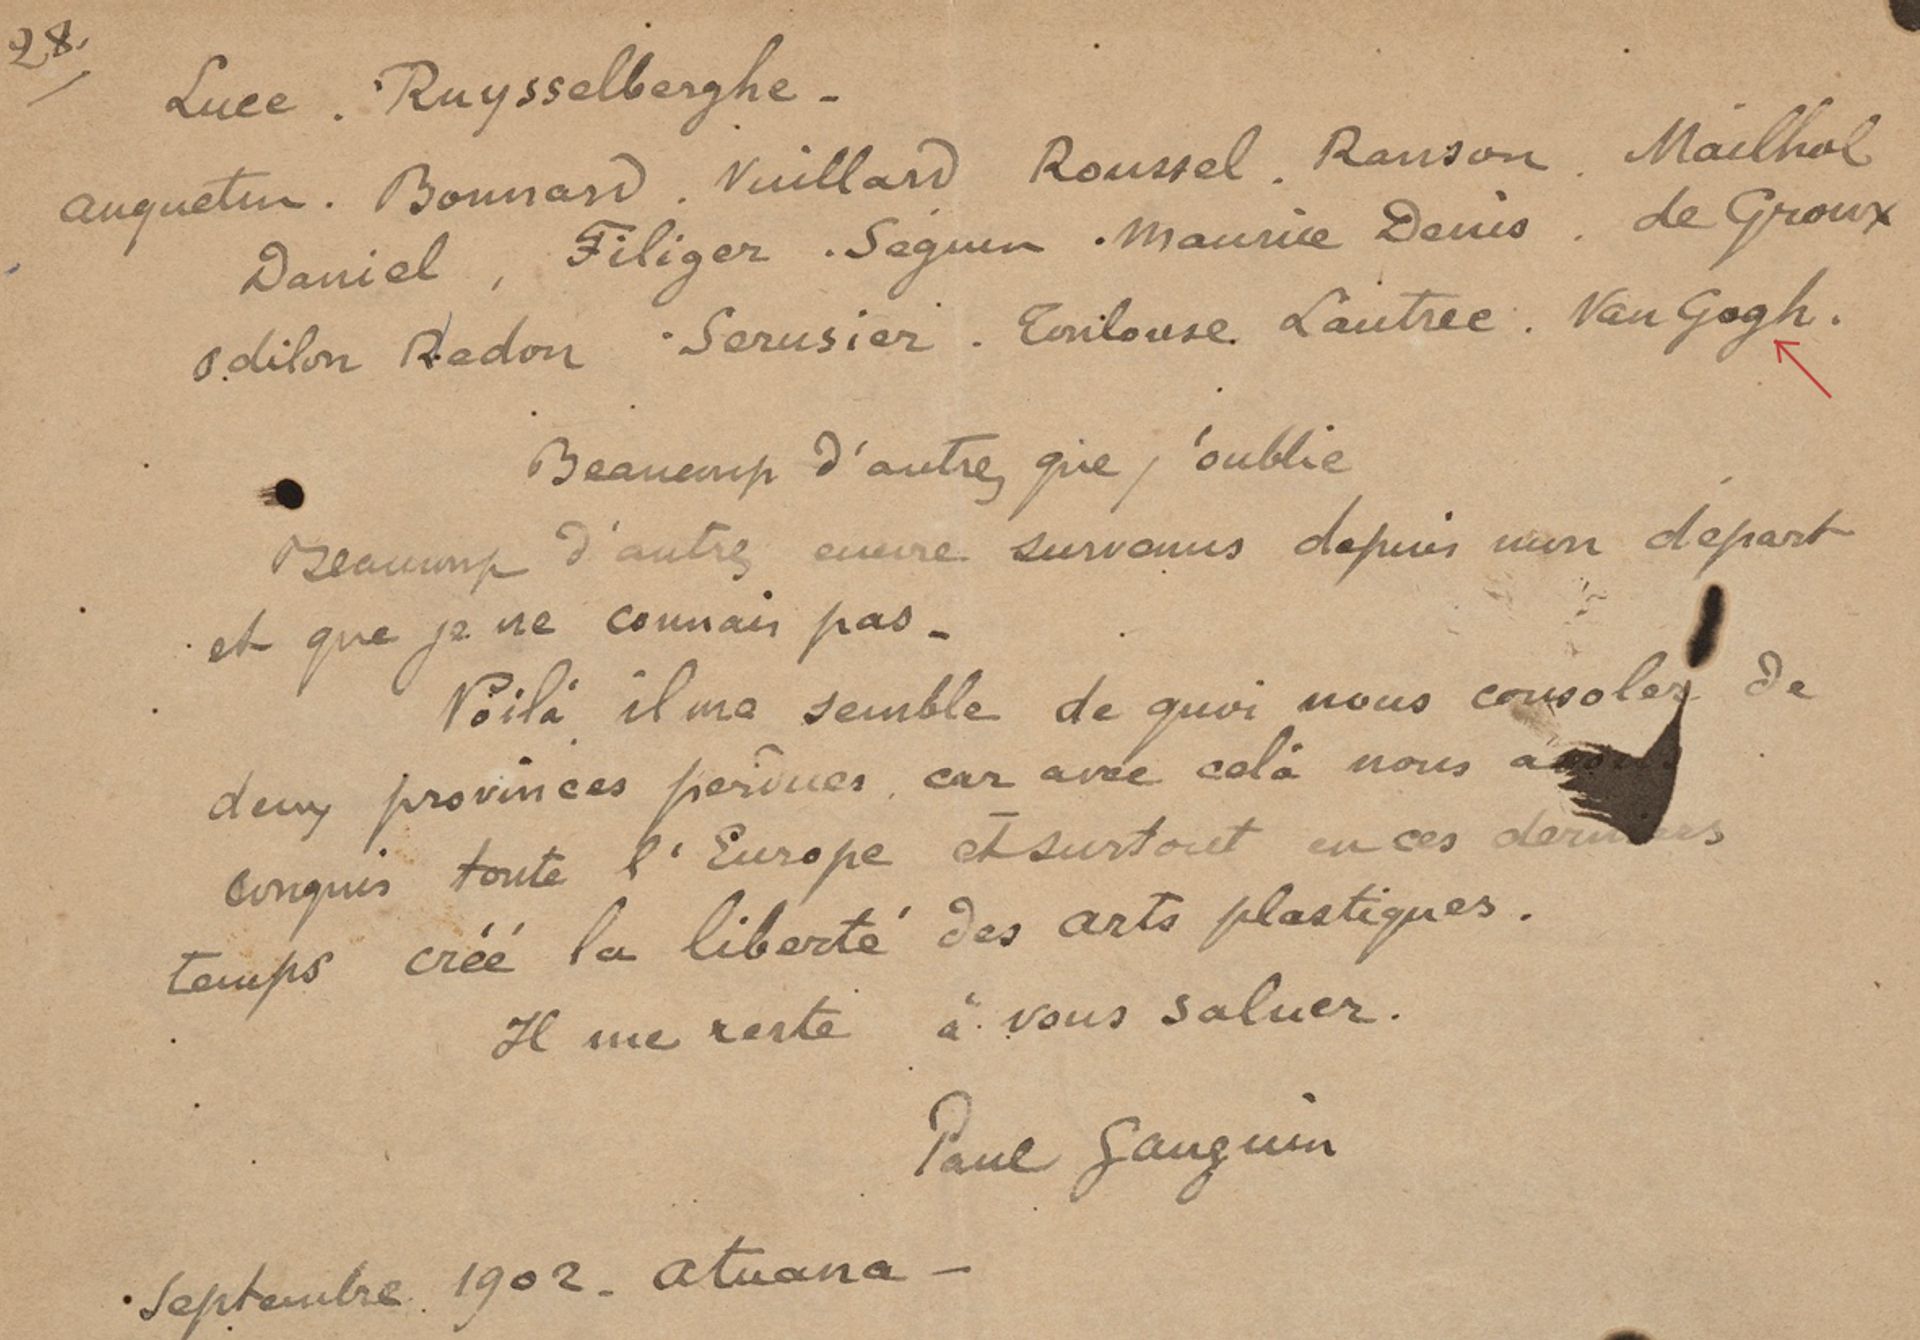 28.
Luce. Ruysselberghe -
Anquetin. Bonnard. Vuillard Roussel. Ranson. Mailhol
Daniel, Filiger. Séguin. Maurice Denis. de Groux
Odilon Redon. Serusier. Toulouse Lautrec. Van Gogh.
Beaucoup d'autres que j'oublie
Beaucoup d'autres encore survenus depuis mon départ
et que je ne connais pas -
Voilà il me semble de quoi nous consoler de
deux provinces perdues, car avec celà nous avons
conquis toute l'Europe et surtout en ces derniers
temps créé la liberté des arts plastiques.
Il me reste à vous saluer.
Paul Gauguin
Septembre 1902 - Atuana -